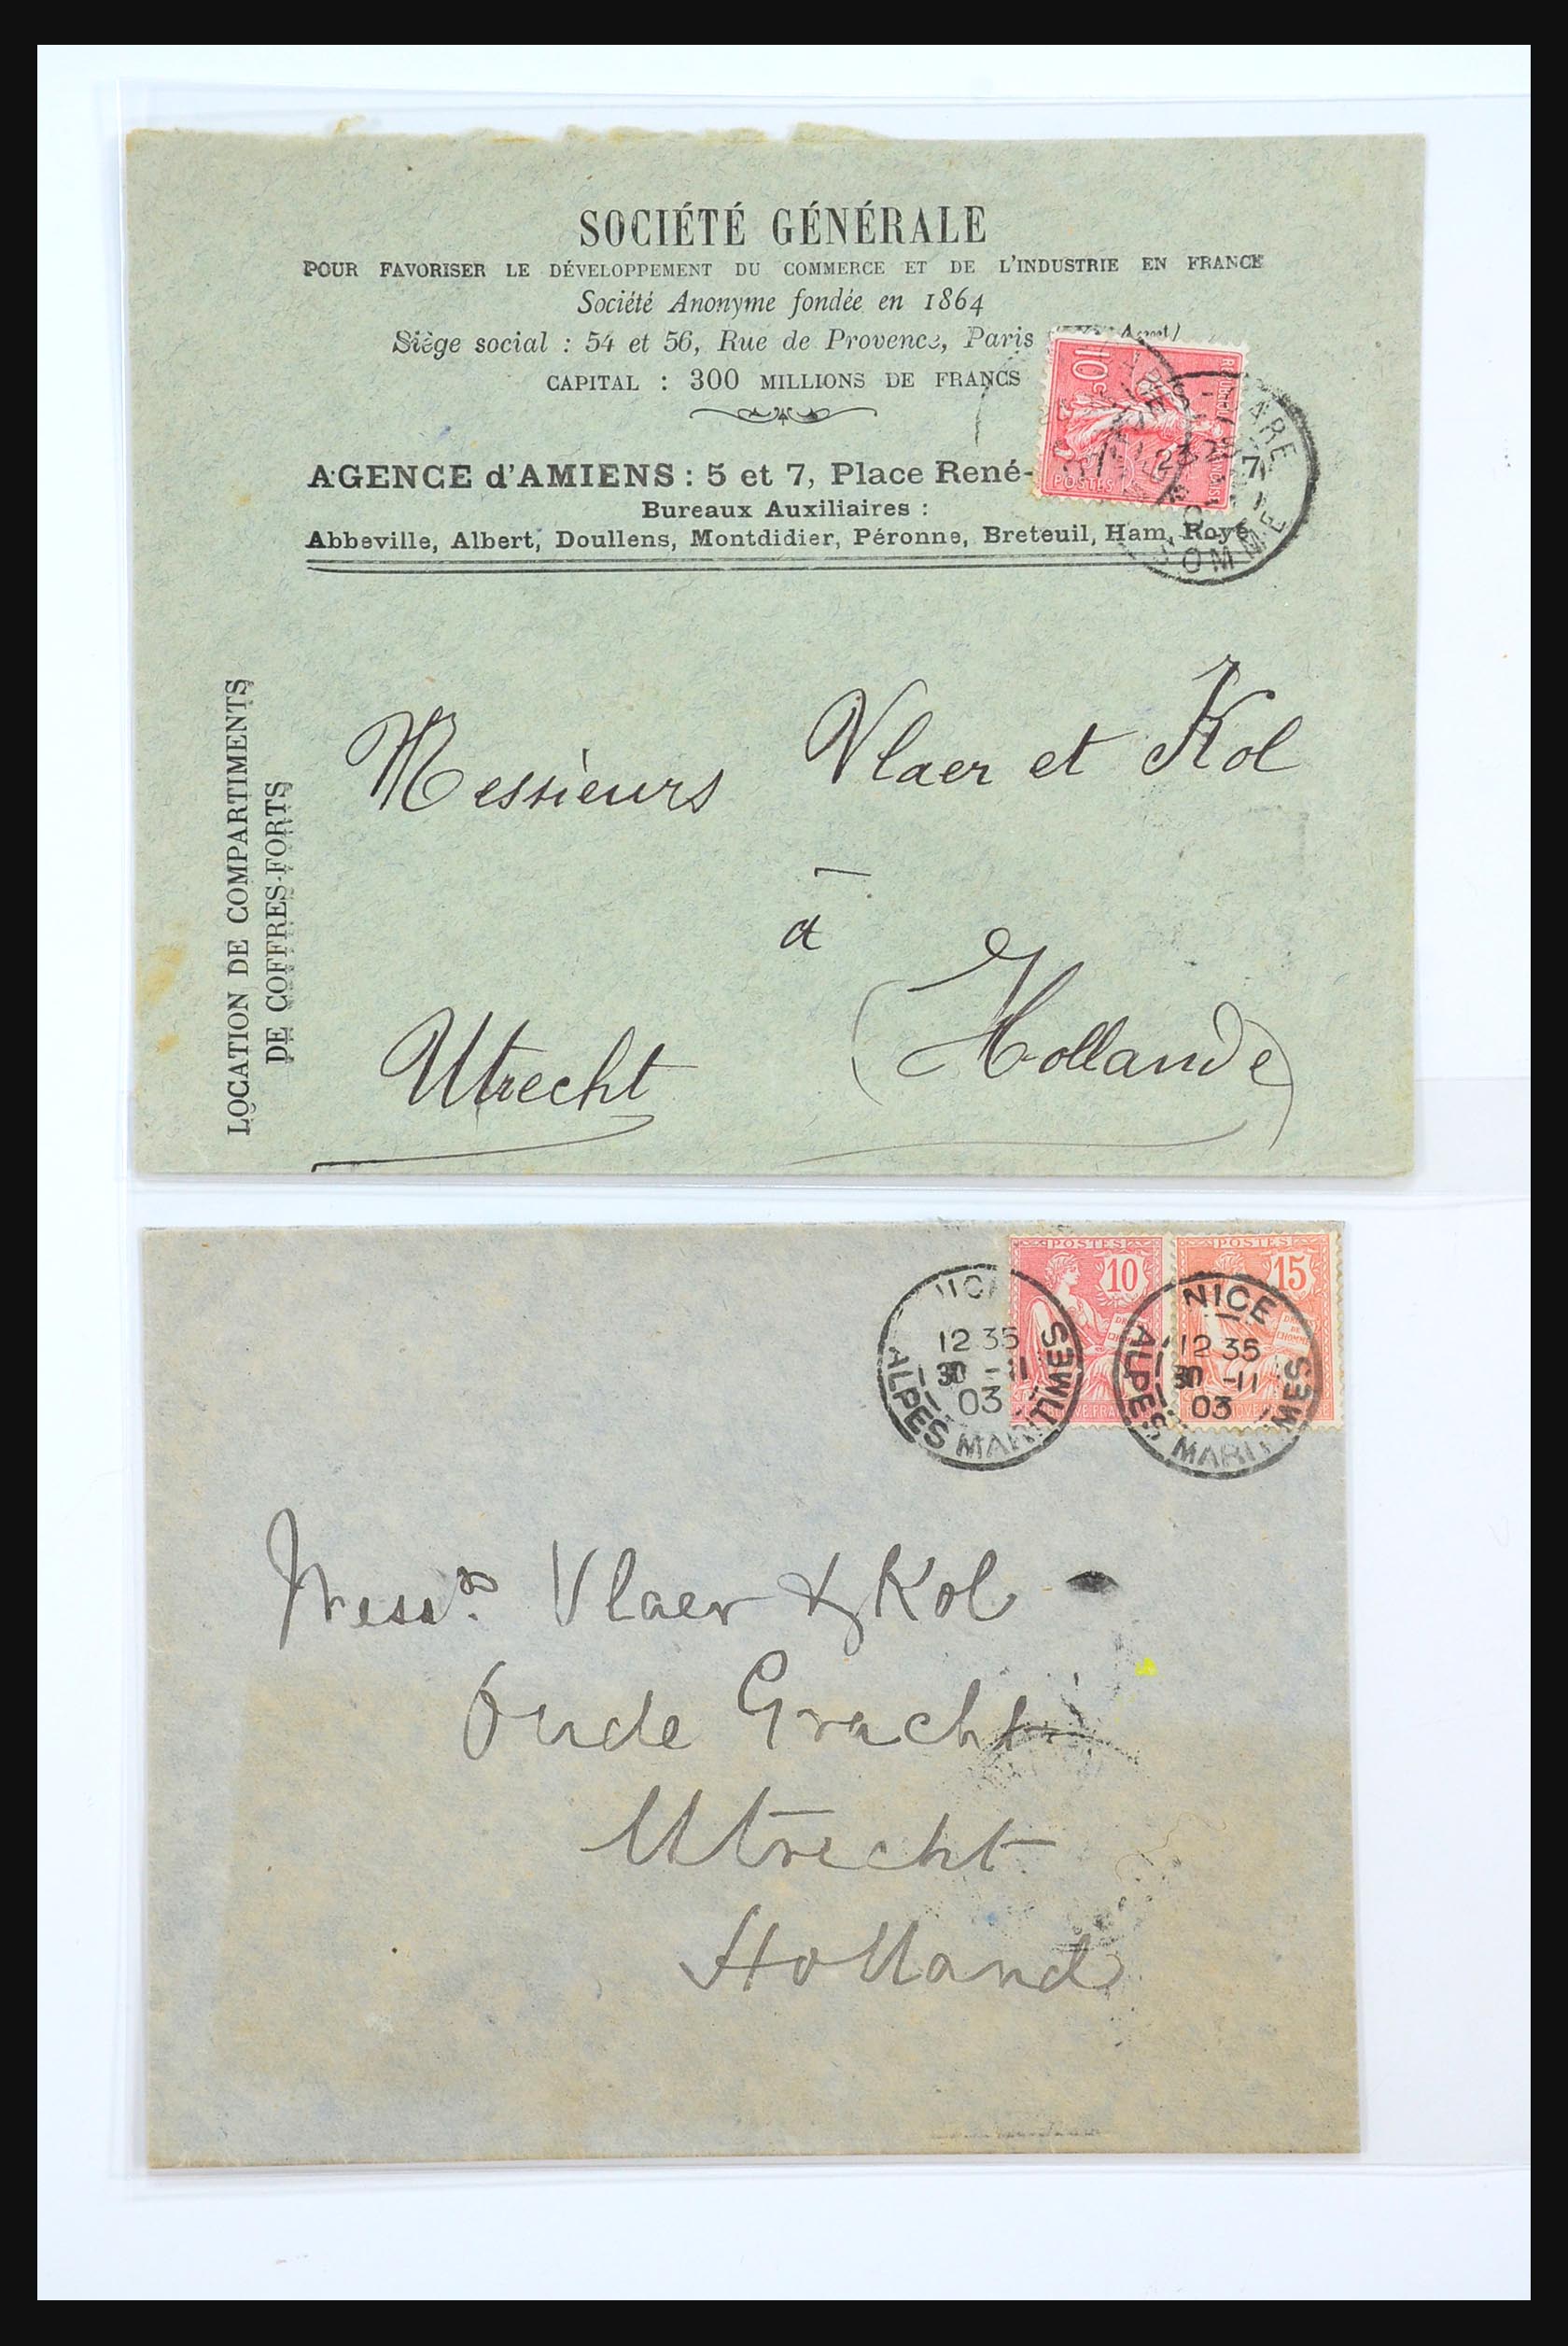 SOCIÉTÉ GÉNÉRALE
POUR FAVORISER LE DÉVELOPPEMENT DU COMMERCE ET DE L'INDUSTRIE EN FRANCE
Société Anonyme fondée en 1864
Siège social : 54 et 56, Rue de Provence, Paris
CAPITAL : 300 MILLIONS DE FRANCS
AGENCE d'AMIENS : 5 et 7, Place René-
Bureaux Auxiliaires :
Abbeville, Albert, Doullens, Montdidier, Péronne, Breteuil, Ham, Roye
10 c
POSTES
GARE
SOMME
LOCATION DE COMPARTIMENTS
DE COFFRES-FORTS
Messieurs Vlaer et Kol
à
Utrecht (Hollande)
POSTES POSTES
10 15
NICE
12 35
30 -11
03
ALPES MARITIMES
NICE
12 35
30 -11
03
ALPES MARITIMES
Messrs. Vlaer & Kol
Oude Gracht
Utrecht
Holland